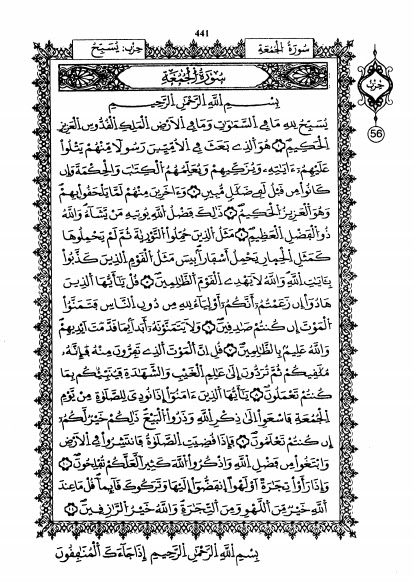 441
سورة الجمعة
حزب: يسبح
سورة الجمعة
حزب
56
بسم الله الرحمن الرحيم
يسبح لله ما في السموت وما في الارض الملك القدوس العزيز
الحكيم هو الذے بعث في الامين رسولا منهم يتلوا
عليهم ءايته ويزكيهم ويعلمهم الكتب والحكمة وإن
كانوا من قبل لفي ضلل مبين وءاخرين منهم لما يلحقوا بهم
وهو العزيز الحكيم ذلك فضل الله يوتيه من يشاء والله
ذو الفضل العظيم مثل الذين حملوا التورية ثم لم يحملوها
كمثل الحمار يحمل أسفارا بيس مثل القوم الذين كذبوا
بئايت الله والله لا يهدے القوم الظلمين قل يأيها الذين
هادوا إن زعمتم أنكم أولياء لله من دون الناس فتمنوا
الموت إن كنتم صدقين ولا يتمنونه أبدا بما قدمت أيديهم
والله عليم بالظلمين قل ان الموت الذے تفرون منه فإنه
ملقيكم ثم تردون إلى علم الغيب والشهدة فينبئكم بما
كنتم تعملون يأيها الذين ءامنوا إذا نودي للصلوة من يوم
الجمعة فاسعوا الى ذكر الله وذروا البيع ذلكم خير لكم
إن كنتم تعلمون فإذا قضيت الصلوة فانتشروا في الارض
وابتغوا من فضل الله واذكروا الله كثيرا لعلكم تفلحون
وإذا رأوا تجرة او لهوا انفضوا إليها وتركوك قايما قل ما عند
الله خير من اللهو ومن التجرة والله خير الرزقين
بسم الله الرحمن الرحيم إذا جاءك المنفقون